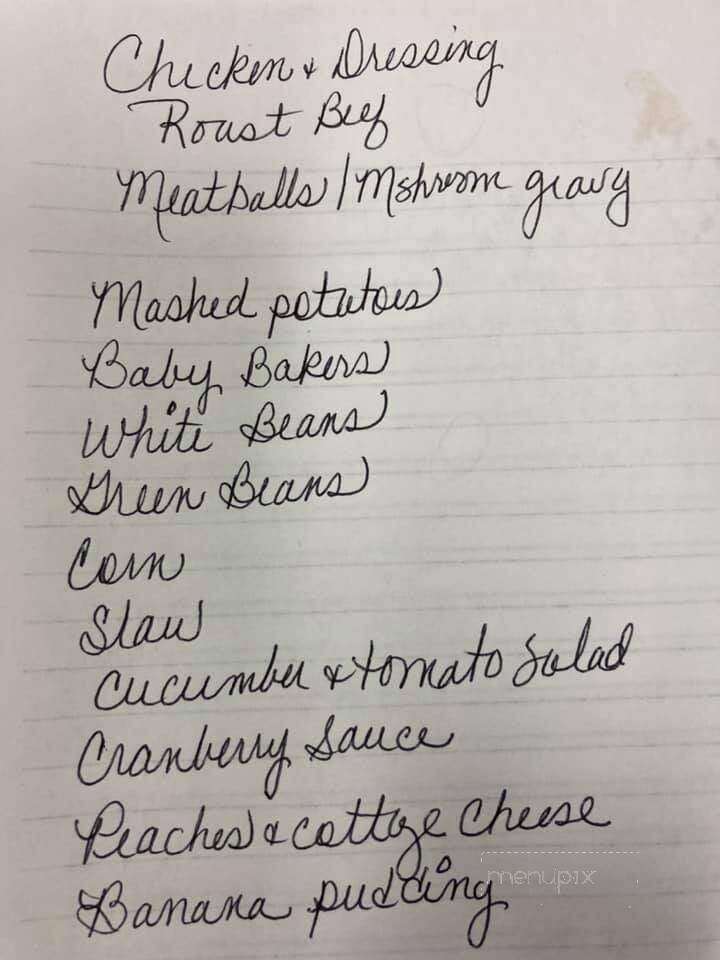 Chicken & Dressing
Roast Beef
Meatballs / Mshroom gravy
Mashed potatoes
Baby Bakers
White Beans
Green Beans
Corn
Slaw
Cucumber & tomato Salad
Cranberry Sauce
Peaches & cottage cheese
menupix
Banana pudding